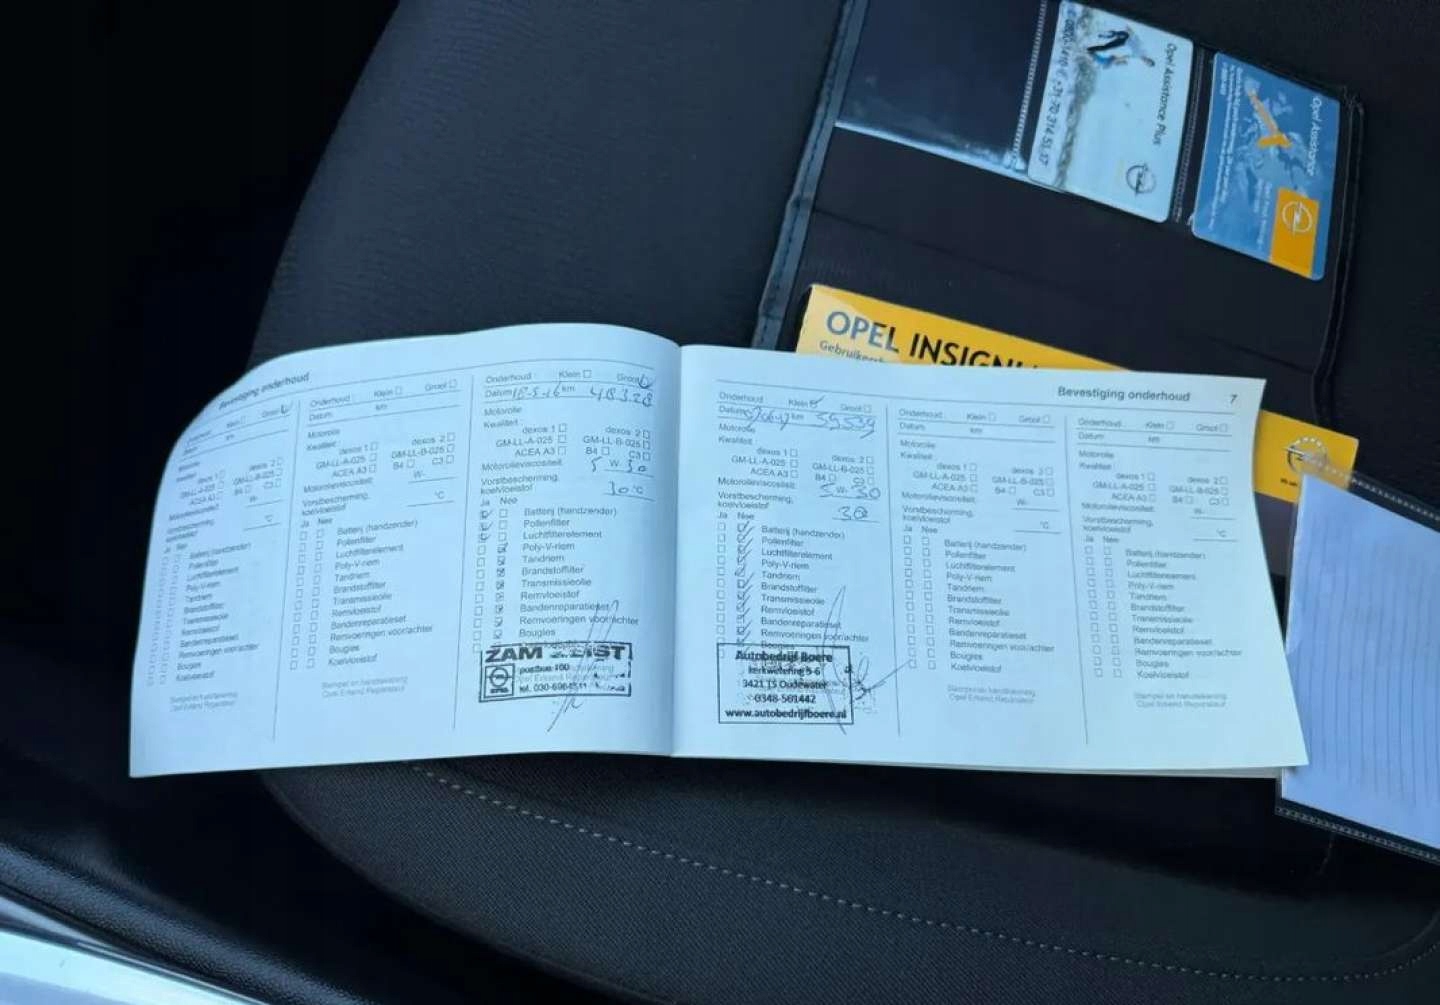 Opel Assistance Plus
Opel Assistance
OPEL INSIGNI
Bevestiging onderhoud
Groot
km
dexos 2
GM-LL-A-025
GM-LL-B-025
Motorolieviscositeit
W-
°C
Ja Nee
Batterij (handzender)
Pollenfilter
Luchtfilterelement
Poly-V-riem
Tandriem
Brandstoffilter
Transmissieolie
Remvloeistof
Bandenreparatieset
Remvoeringen voor/achter
Bougies
Koelvloeistof
Stempel en handtekening
Opel Erkend Reparateur
Onderhoud : Klein Groot
Datum km
Motorolie
Kwaliteit : dexos 1 dexos 2
GM-LL-A-025 GM-LL-B-025
ACEA A3 B4 C3
Motorolieviscositeit: W-
Vorstbescherming,
koelvloeistof °C
Ja Nee
Batterij (handzender)
Pollenfilter
Luchtfilterelement
Poly-V-riem
Tandriem
Brandstoffilter
Transmissieolie
Remvloeistof
Bandenreparatieset
Remvoeringen voor/achter
Bougies
Koelvloeistof
Stempel en handtekening
Opel Erkend Reparateur
Onderhoud : Klein Groot
Datum 18-5-16 km 48328
Motorolie
Kwaliteit : dexos 1 dexos 2
GM-LL-A-025 GM-LL-B-025
ACEA A3 B4 C3
Motorolieviscositeit: 5 W- 30
Vorstbescherming,
koelvloeistof 30°C
Ja Nee
Batterij (handzender)
Pollenfilter
Luchtfilterelement
Poly-V-riem
Tandriem
Brandstoffilter
Transmissieolie
Remvloeistof
Bandenreparatieset
Remvoeringen voor/achter
Bougies
ZAM ZEIST
postbus 160
tel. 030-6964511
Bevestiging onderhoud 7
Onderhoud : Klein Groot
Datum km 59539
Motorolie
Kwaliteit : dexos 1 dexos 2
GM-LL-A-025 GM-LL-B-025
ACEA A3 B4 C3
Motorolieviscositeit: 5 W- 30
Vorstbescherming,
koelvloeistof 30
Ja Nee
Batterij (handzender)
Pollenfilter
Luchtfilterelement
Poly-V-riem
Tandriem
Brandstoffilter
Transmissieolie
Remvloeistof
Bandenreparatieset
Remvoeringen voor/achter
Autobedrijf Boere
Kerkwetering 5-6
3421 TS Oudewater
0348-561442
www.autobedrijfboere.nl
Onderhoud : Klein Groot
Datum km
Motorolie
Kwaliteit : dexos 1 dexos 2
GM-LL-A-025 GM-LL-B-025
ACEA A3 B4 C3
Motorolieviscositeit: W-
Vorstbescherming,
koelvloeistof °C
Ja Nee
Batterij (handzender)
Pollenfilter
Luchtfilterelement
Poly-V-riem
Tandriem
Brandstoffilter
Transmissieolie
Remvloeistof
Bandenreparatieset
Remvoeringen voor/achter
Bougies
Koelvloeistof
Stempel en handtekening
Opel Erkend Reparateur
Onderhoud : Klein Groot
Datum km
Motorolie
Kwaliteit : dexos 1 dexos 2
GM-LL-A-025 GM-LL-B-025
ACEA A3 B4 C3
Motorolieviscositeit: W-
Vorstbescherming,
koelvloeistof °C
Ja Nee
Batterij (handzender)
Pollenfilter
Luchtfilterelement
Poly-V-riem
Tandriem
Brandstoffilter
Transmissieolie
Remvloeistof
Bandenreparatieset
Remvoeringen voor/achter
Bougies
Koelvloeistof
Stempel en handtekening
Opel Erkend Reparateur